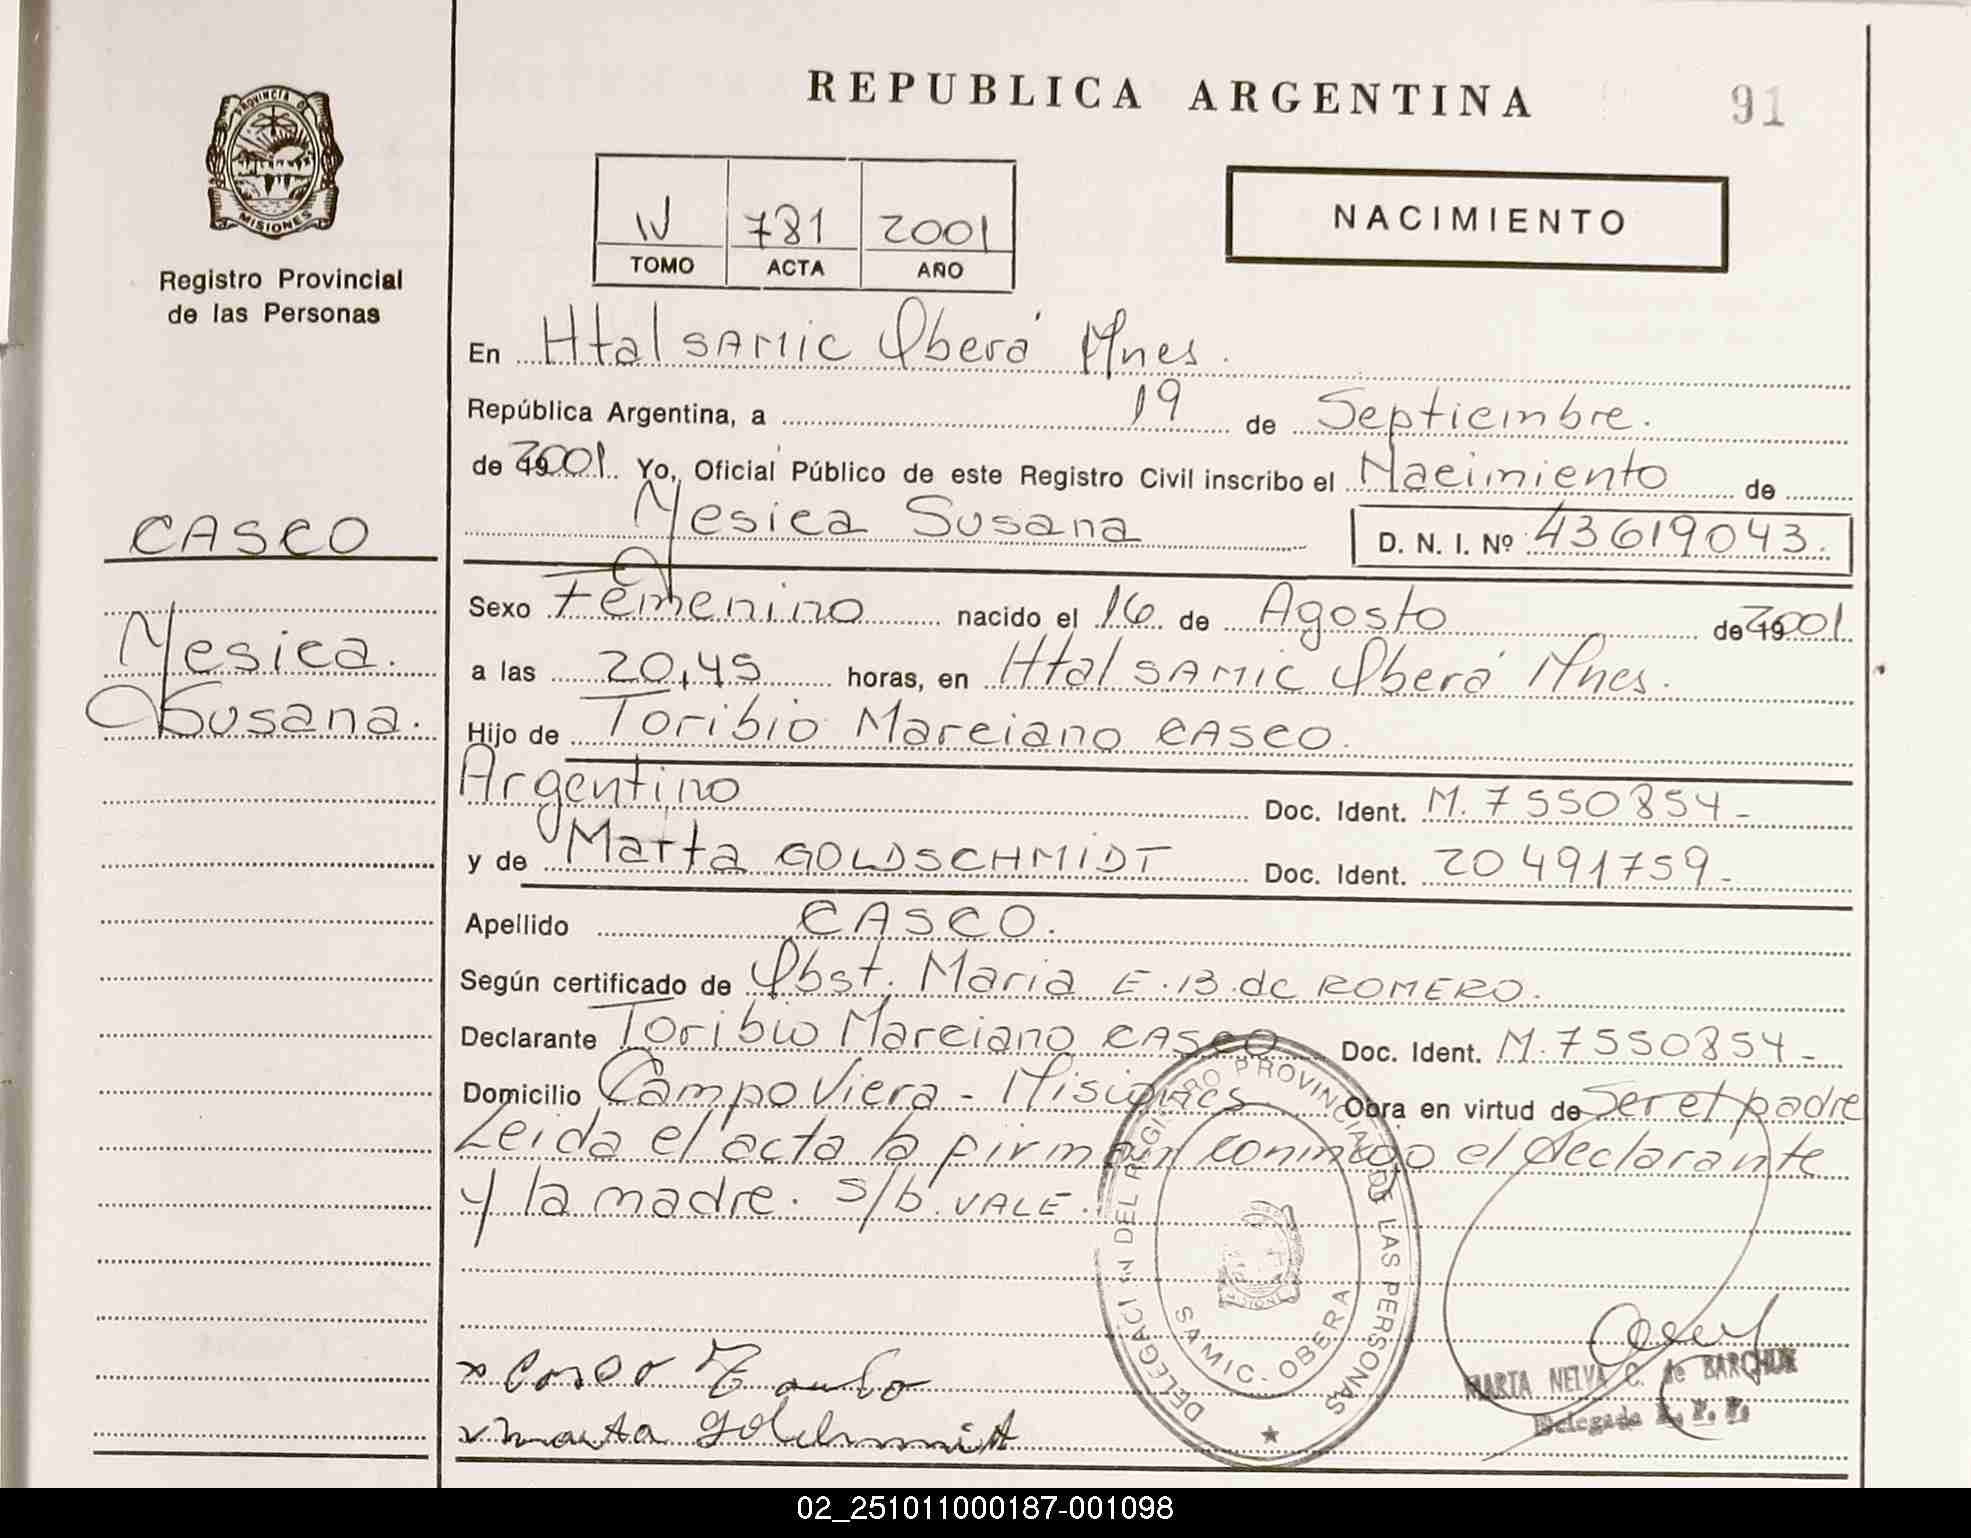 REPUBLICA ARGENTINA
91
PROVINCIA D
MISIONES
Registro Provincial
de las Personas
IV 781 2001
TOMO ACTA AÑO
NACIMIENTO
En Htal SAMIC Oberá Mnes.
República Argentina, a 19 de Septiembre.
de 2001. Yo, Oficial Público de este Registro Civil inscribo el Nacimiento de
Yesica Susana D. N. I. Nº 43619043.
CASCO
Yesica.
Susana.
Sexo Femenino nacido el 16 de Agosto de 2001.
a las 20,45 horas, en Htal SAMIC Oberá Mnes.
Hijo de Toribio Marciano CASCO.
Argentino Doc. Ident. M. 7550854-
y de Marta GOLDSCHMIDT Doc. Ident. 20491759-
Apellido CASCO.
Según certificado de Obst. Maria E. B. de ROMERO.
Declarante Toribio Marciano CASCO Doc. Ident. M. 7550854-
Domicilio Campo Viera - Misiones Obra en virtud de Ser el padre
Leida el acta la firman conmigo el declarante
y la madre. S/b. VALE.
DELEGACIÓN DEL REGISTRO PROVINCIAL DE LAS PERSONAS
SAMIC. OBERA
x Casco
x Marta Goldchmidt
MARTA NELVA C. de BARCHUK
Delegada R. P. P.
02_251011000187-001098